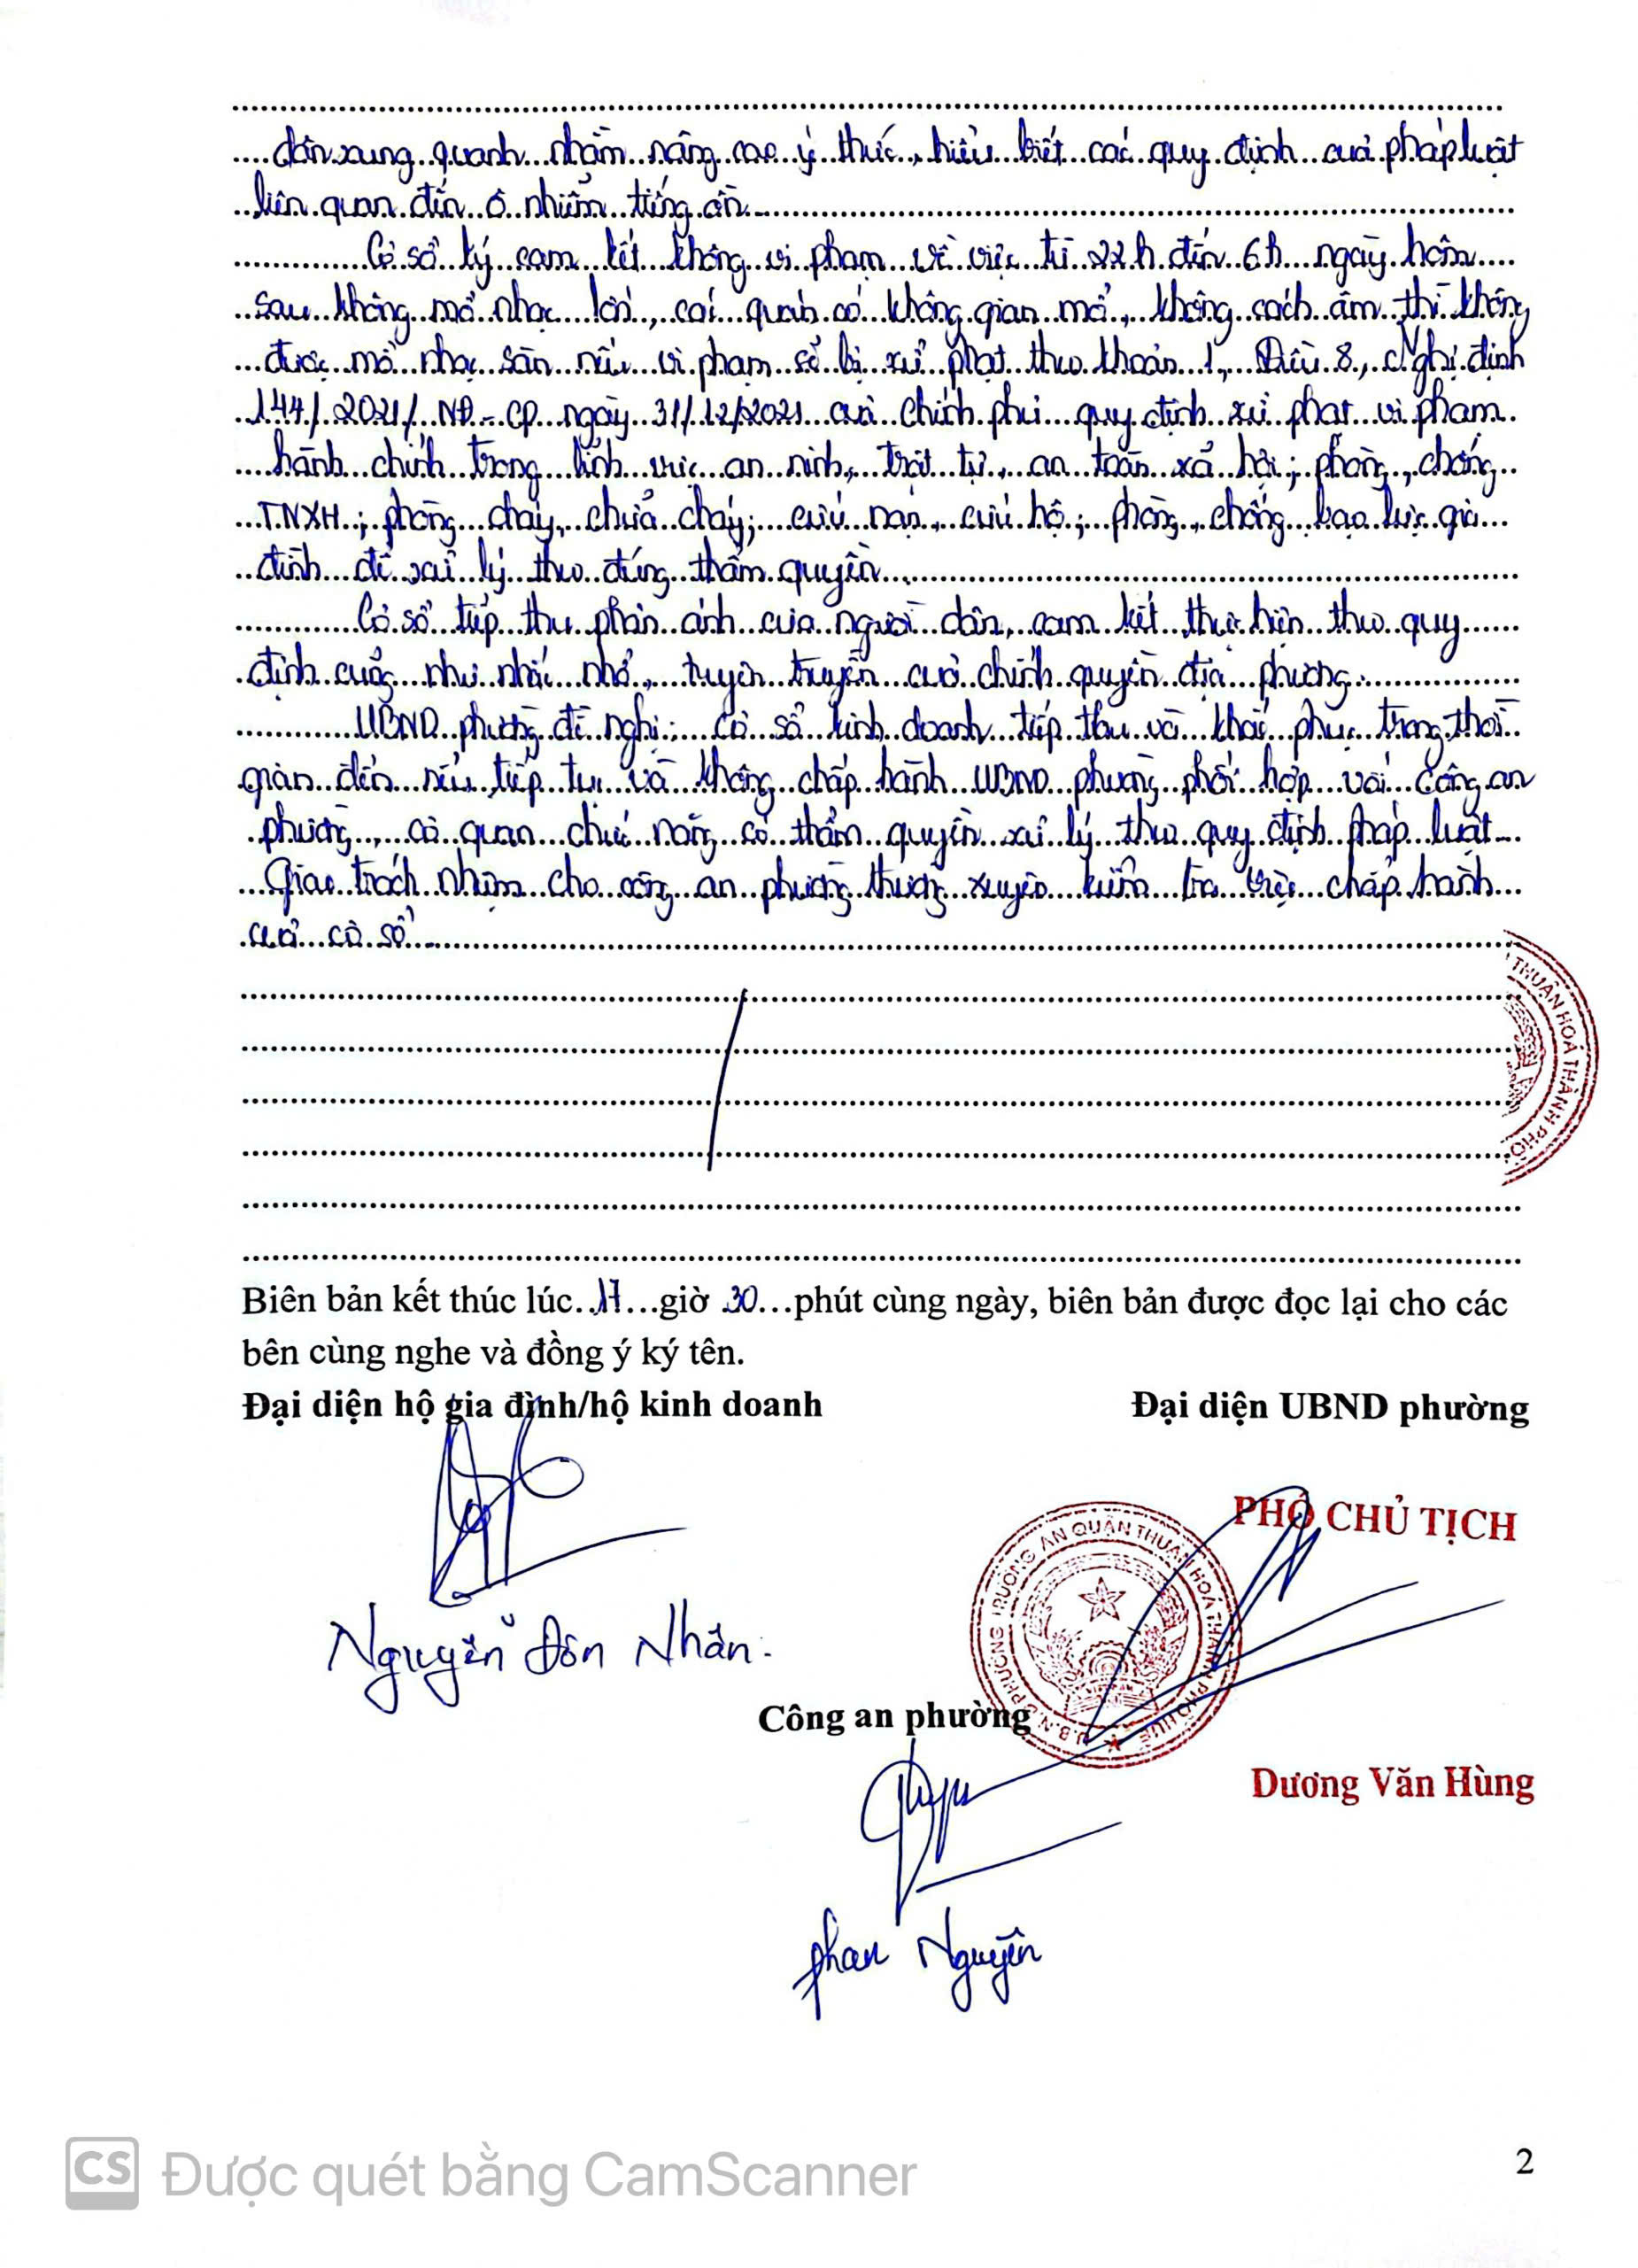 dân xung quanh nhằm nâng cao ý thức, hiểu biết các quy định của pháp luật
liên quan đến ô nhiễm tiếng ồn.
Cơ sở ký cam kết không vi phạm về việc từ 22h đến 6h ngày hôm
sau không mở nhạc lớn, các quán có không gian mở, không cách âm thì không
được mở nhạc sàn nếu vi phạm sẽ bị xử phạt theo khoản 1, Điều 8, Nghị định
144/2021/NĐ-CP ngày 31/12/2021 của Chính phủ quy định xử phạt vi phạm
hành chính trong lĩnh vực an ninh, trật tự, an toàn xã hội; phòng, chống
TNXH; phòng cháy, chữa cháy; cứu nạn, cứu hộ; phòng, chống bạo lực gia
đình để xử lý theo đúng thẩm quyền.
Cơ sở tiếp thu phản ánh của người dân, cam kết thực hiện theo quy
định cũng như nhắc nhở, tuyên truyền của chính quyền địa phương.
UBND phường đề nghị: cơ sở kinh doanh tiếp thu và khắc phục trong thời
gian đến nếu tiếp tục và không chấp hành UBND phường phối hợp với Công an
phường, cơ quan chức năng có thẩm quyền xử lý theo quy định pháp luật.
Giao trách nhiệm cho công an phường thường xuyên kiểm tra việc chấp hành
của cơ sở.
THUẬN HOÁ THÀNH PHỐ
Biên bản kết thúc lúc 17 giờ 30 phút cùng ngày, biên bản được đọc lại cho các
bên cùng nghe và đồng ý ký tên.
Đại diện hộ gia đình/hộ kinh doanh Đại diện UBND phường
PHÓ CHỦ TỊCH
U.B.N.D PHƯỜNG TRƯỜNG AN QUẬN THUẬN HOÁ THÀNH PHỐ HUẾ
Nguyễn Đôn Nhân.
Công an phường
Dương Văn Hùng
Phan Nguyên
2
CS Được quét bằng CamScanner